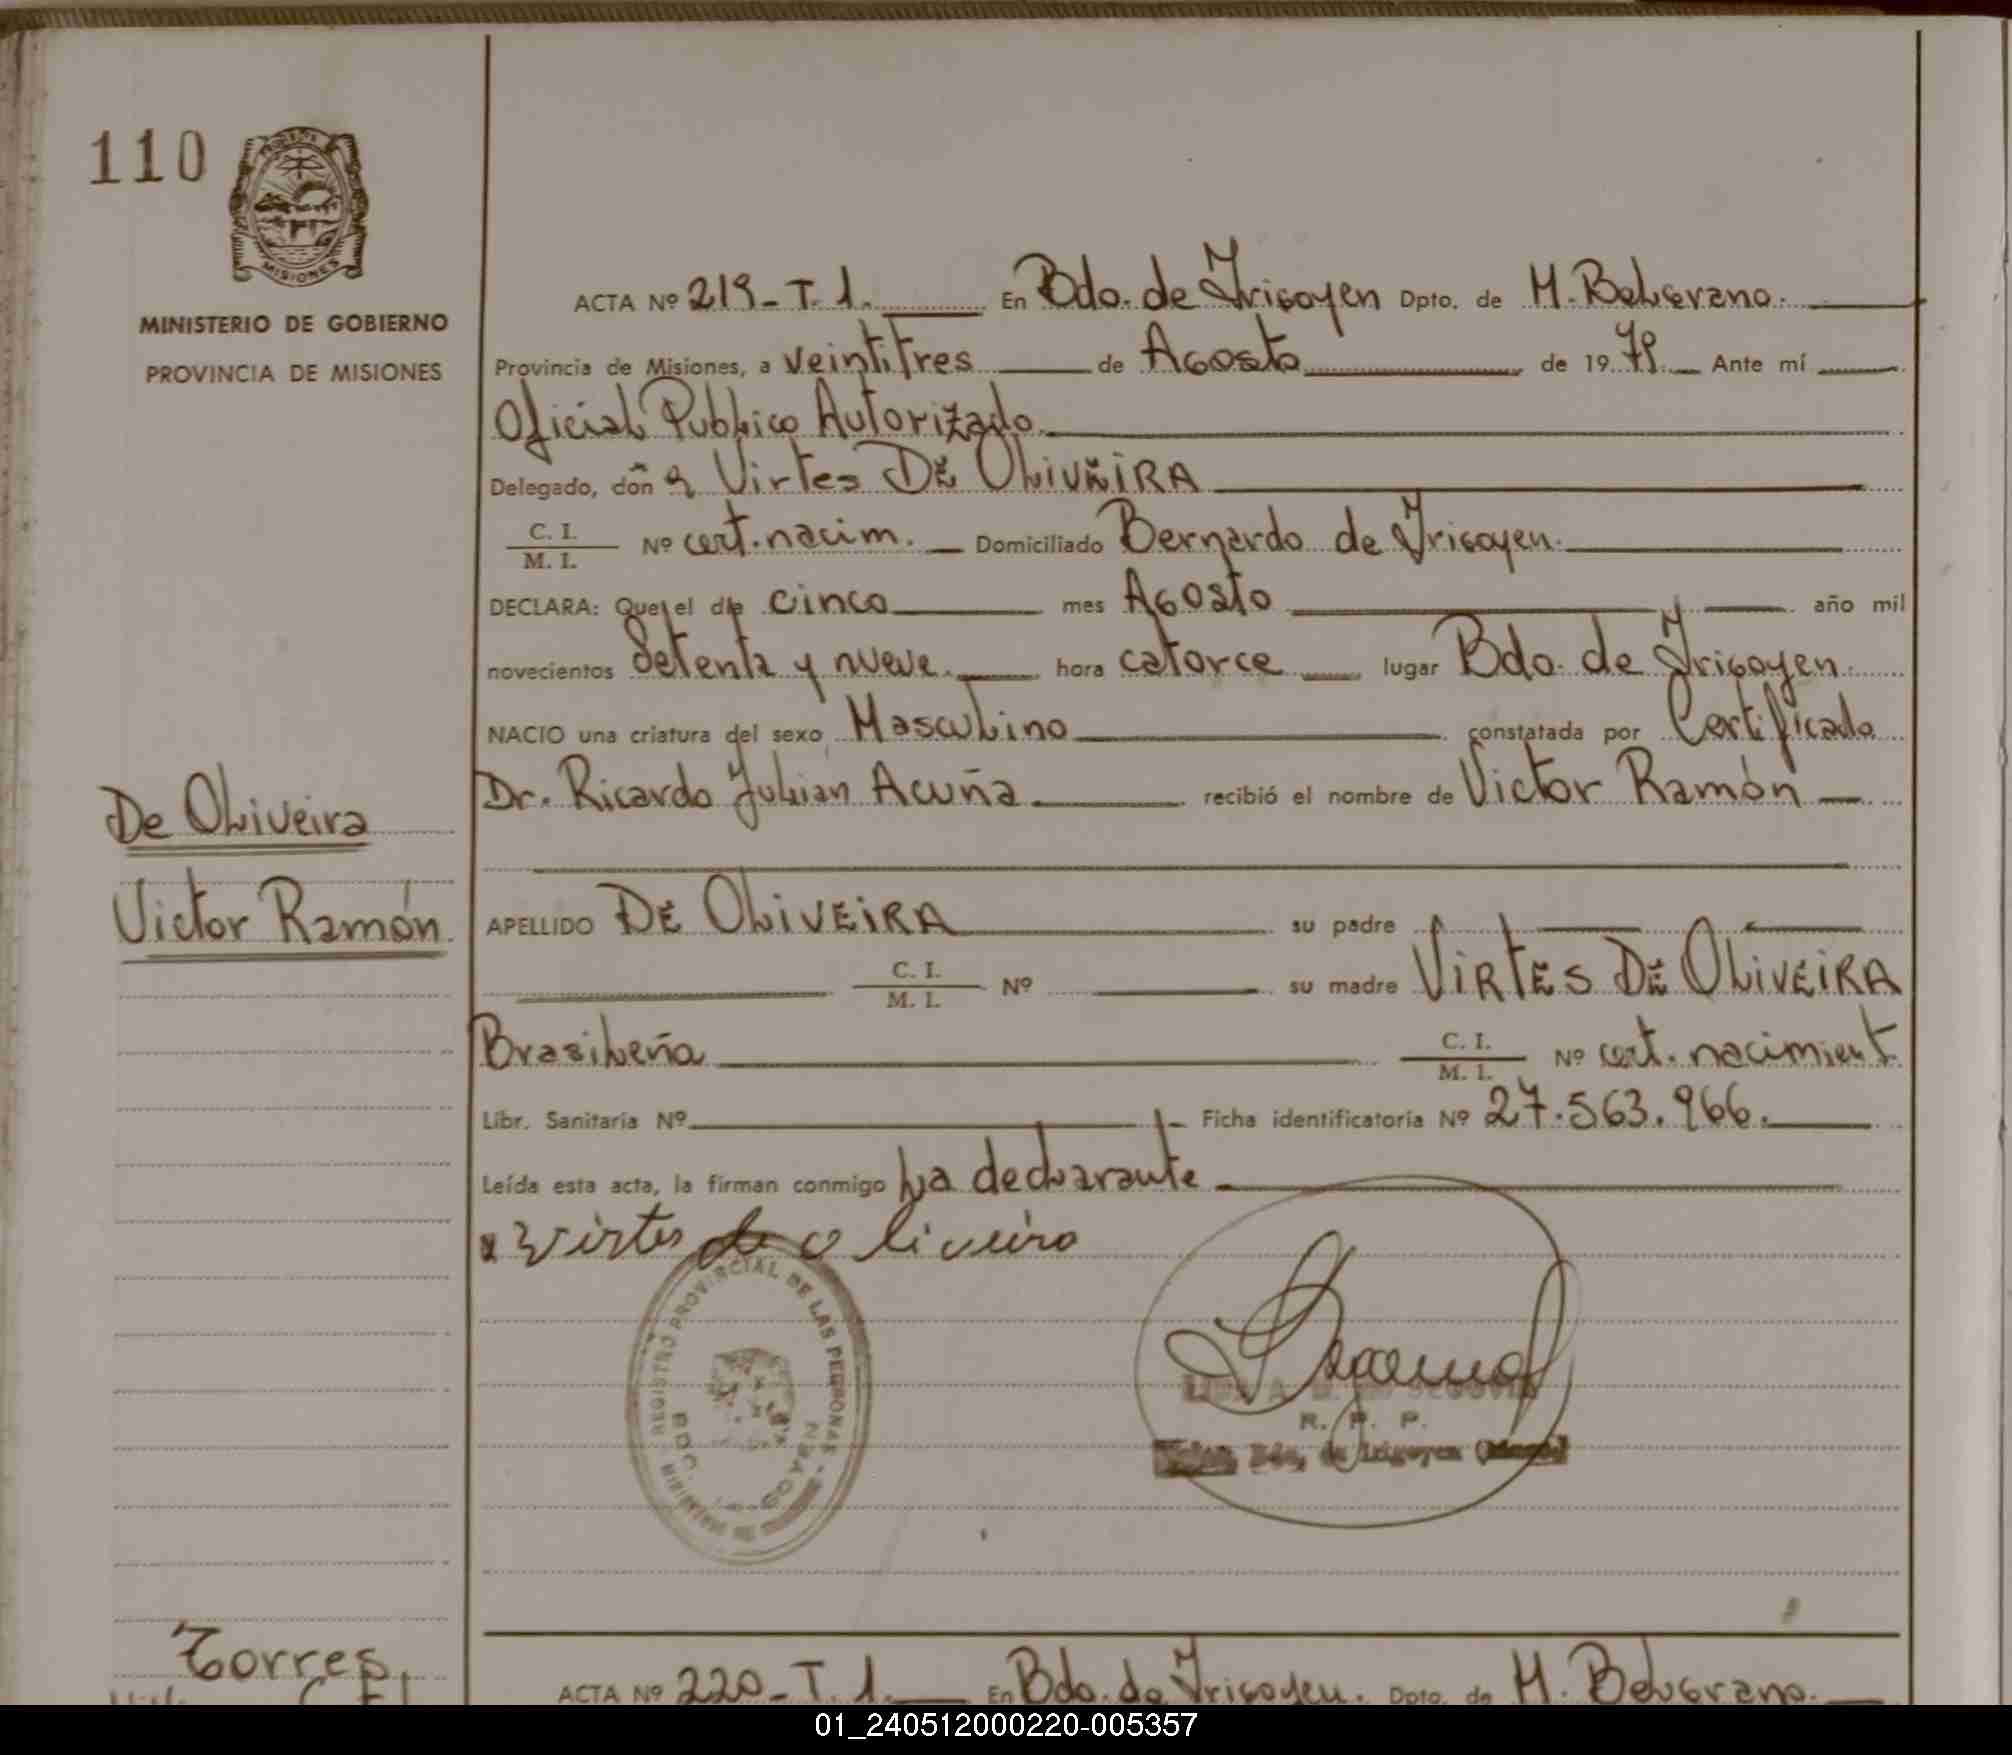 110
MISIONES
MINISTERIO DE GOBIERNO
PROVINCIA DE MISIONES
ACTA Nº 219-T.1. En Bdo. de Irigoyen Dpto. de M. Belgrano.
Provincia de Misiones, a veintitres de Agosto de 1979. Ante mí
Oficial Publico Autorizado
Delegado, don a Virtes DE OLIVEIRA
C. I.
M. I. Nº cert. nacim. Domiciliado Bernardo de Irigoyen.
DECLARA: Que el día cinco mes Agosto año mil
novecientos Setenta y nueve. hora catorce lugar Bdo. de Irigoyen.
NACIO una criatura del sexo Masculino constatada por Certificado
Dr. Ricardo Julian Acuña recibió el nombre de Victor Ramón
De Oliveira
Victor Ramón
APELLIDO DE OLIVEIRA su padre
C. I.
M. I. Nº su madre VIRTES DE OLIVEIRA
Brasileña C. I.
M. I. Nº cert. nacimient
Libr. Sanitaria Nº Ficha identificatoria Nº 27.563.966.
Leída esta acta, la firman conmigo La declarante
x Virtes de oliveira
REGISTRO PROVINCIAL DE LAS PERSONAS
R. P. P.
Bdo. de Irigoyen
Torres
ACTA Nº 220-T.1. En Bdo. de Irigoyen. Dpto. de M. Belgrano.
01_240512000220-005357